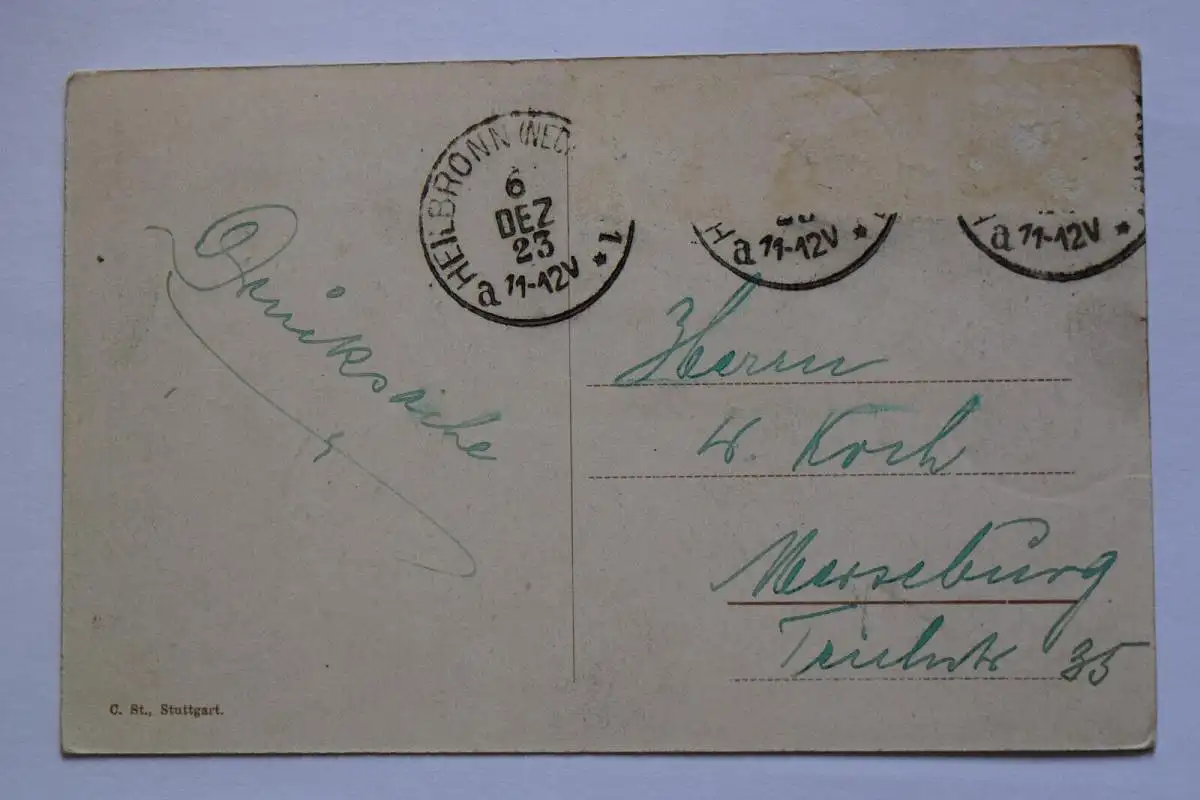 HEILBRONN (NEC
6
DEZ
23
a 11-12V * 1
H
a 11-12V *
a 11-12V *
Drucksache
Herrn
W. Koch
Merseburg
35
C. St., Stuttgart.